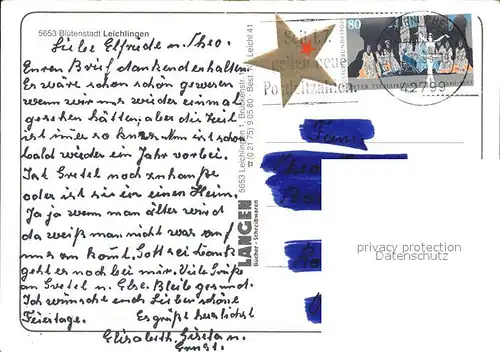 5653 Blütenstadt Leichlingen
Liebe Elfriede u. Theo.
Euren Brief dankend erhalten.
Es wäre schon schön gewesen
wenn wir uns wieder einmal
gesehen hätten, aber die Zeit
ist immer so kurz. Nun ist schon
bald wieder ein Jahr vorbei.
Ist Gretel noch zuhause
oder ist sie in einem Heim.
Ja ja wenn man älter wird
da weiß man nicht was auf
uns an kommt. Gott sei Dank
geht es noch bei mir. Viele Grüße
an Gretel u. Else. Bleibt gesund.
Ich wünsche euch Lieben schöne
Feiertage. Es grüßt herzlichst
Elisabeth, Gisela u.
Ernst.
LANGEN
Bücher · Schreibwaren
5653 Leichlingen 1
☎ (0 21 75) 9 05 80
Seit 1.7.
gelten neue
Postleitzahlen
80
42799
Fam.
Theo
privacy protection
Datenschutz